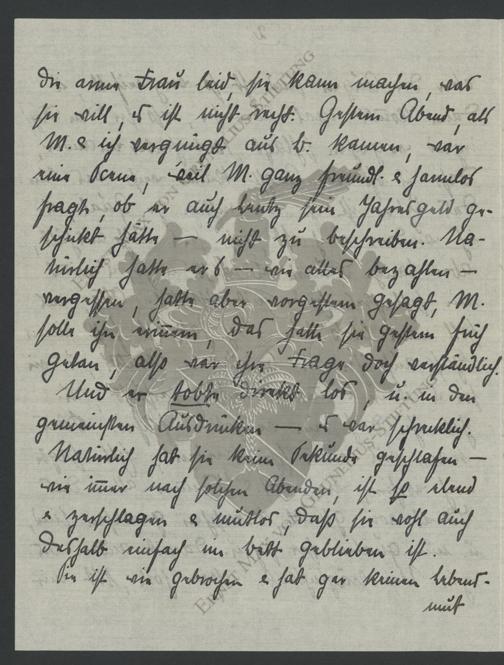 die arme Frau leid, sie kann machen, was
sie will, es ist nicht recht. Gestern Abend, als
M. & ich vergnügt aus b. kamen, war
eine Scene, weil M. ganz freundl. & harmlos
fragte, ob er auch sein Jahresgeld ge-
schickt hätte — nicht zu beschreiben. Na-
türlich hatte er's — wie alles bezahlen —
vergessen, hatte aber vorgestern gesagt, M.
solle ihn erinnern, das hatte sie gestern früh
getan, also war ihre Frage doch verständlich.
Und er tobte direkt los u. in den
gemeinsten Ausdrücken — es war schrecklich.
Natürlich hat sie keine Sekunde geschlafen —
wie immer nach solchen Abenden, ist so elend
& zerschlagen & mutlos, daß sie wohl auch
deshalb einfach im bett geblieben ist.
Sie ist wie gebrochen & hat gar keinen Lebens-
mut